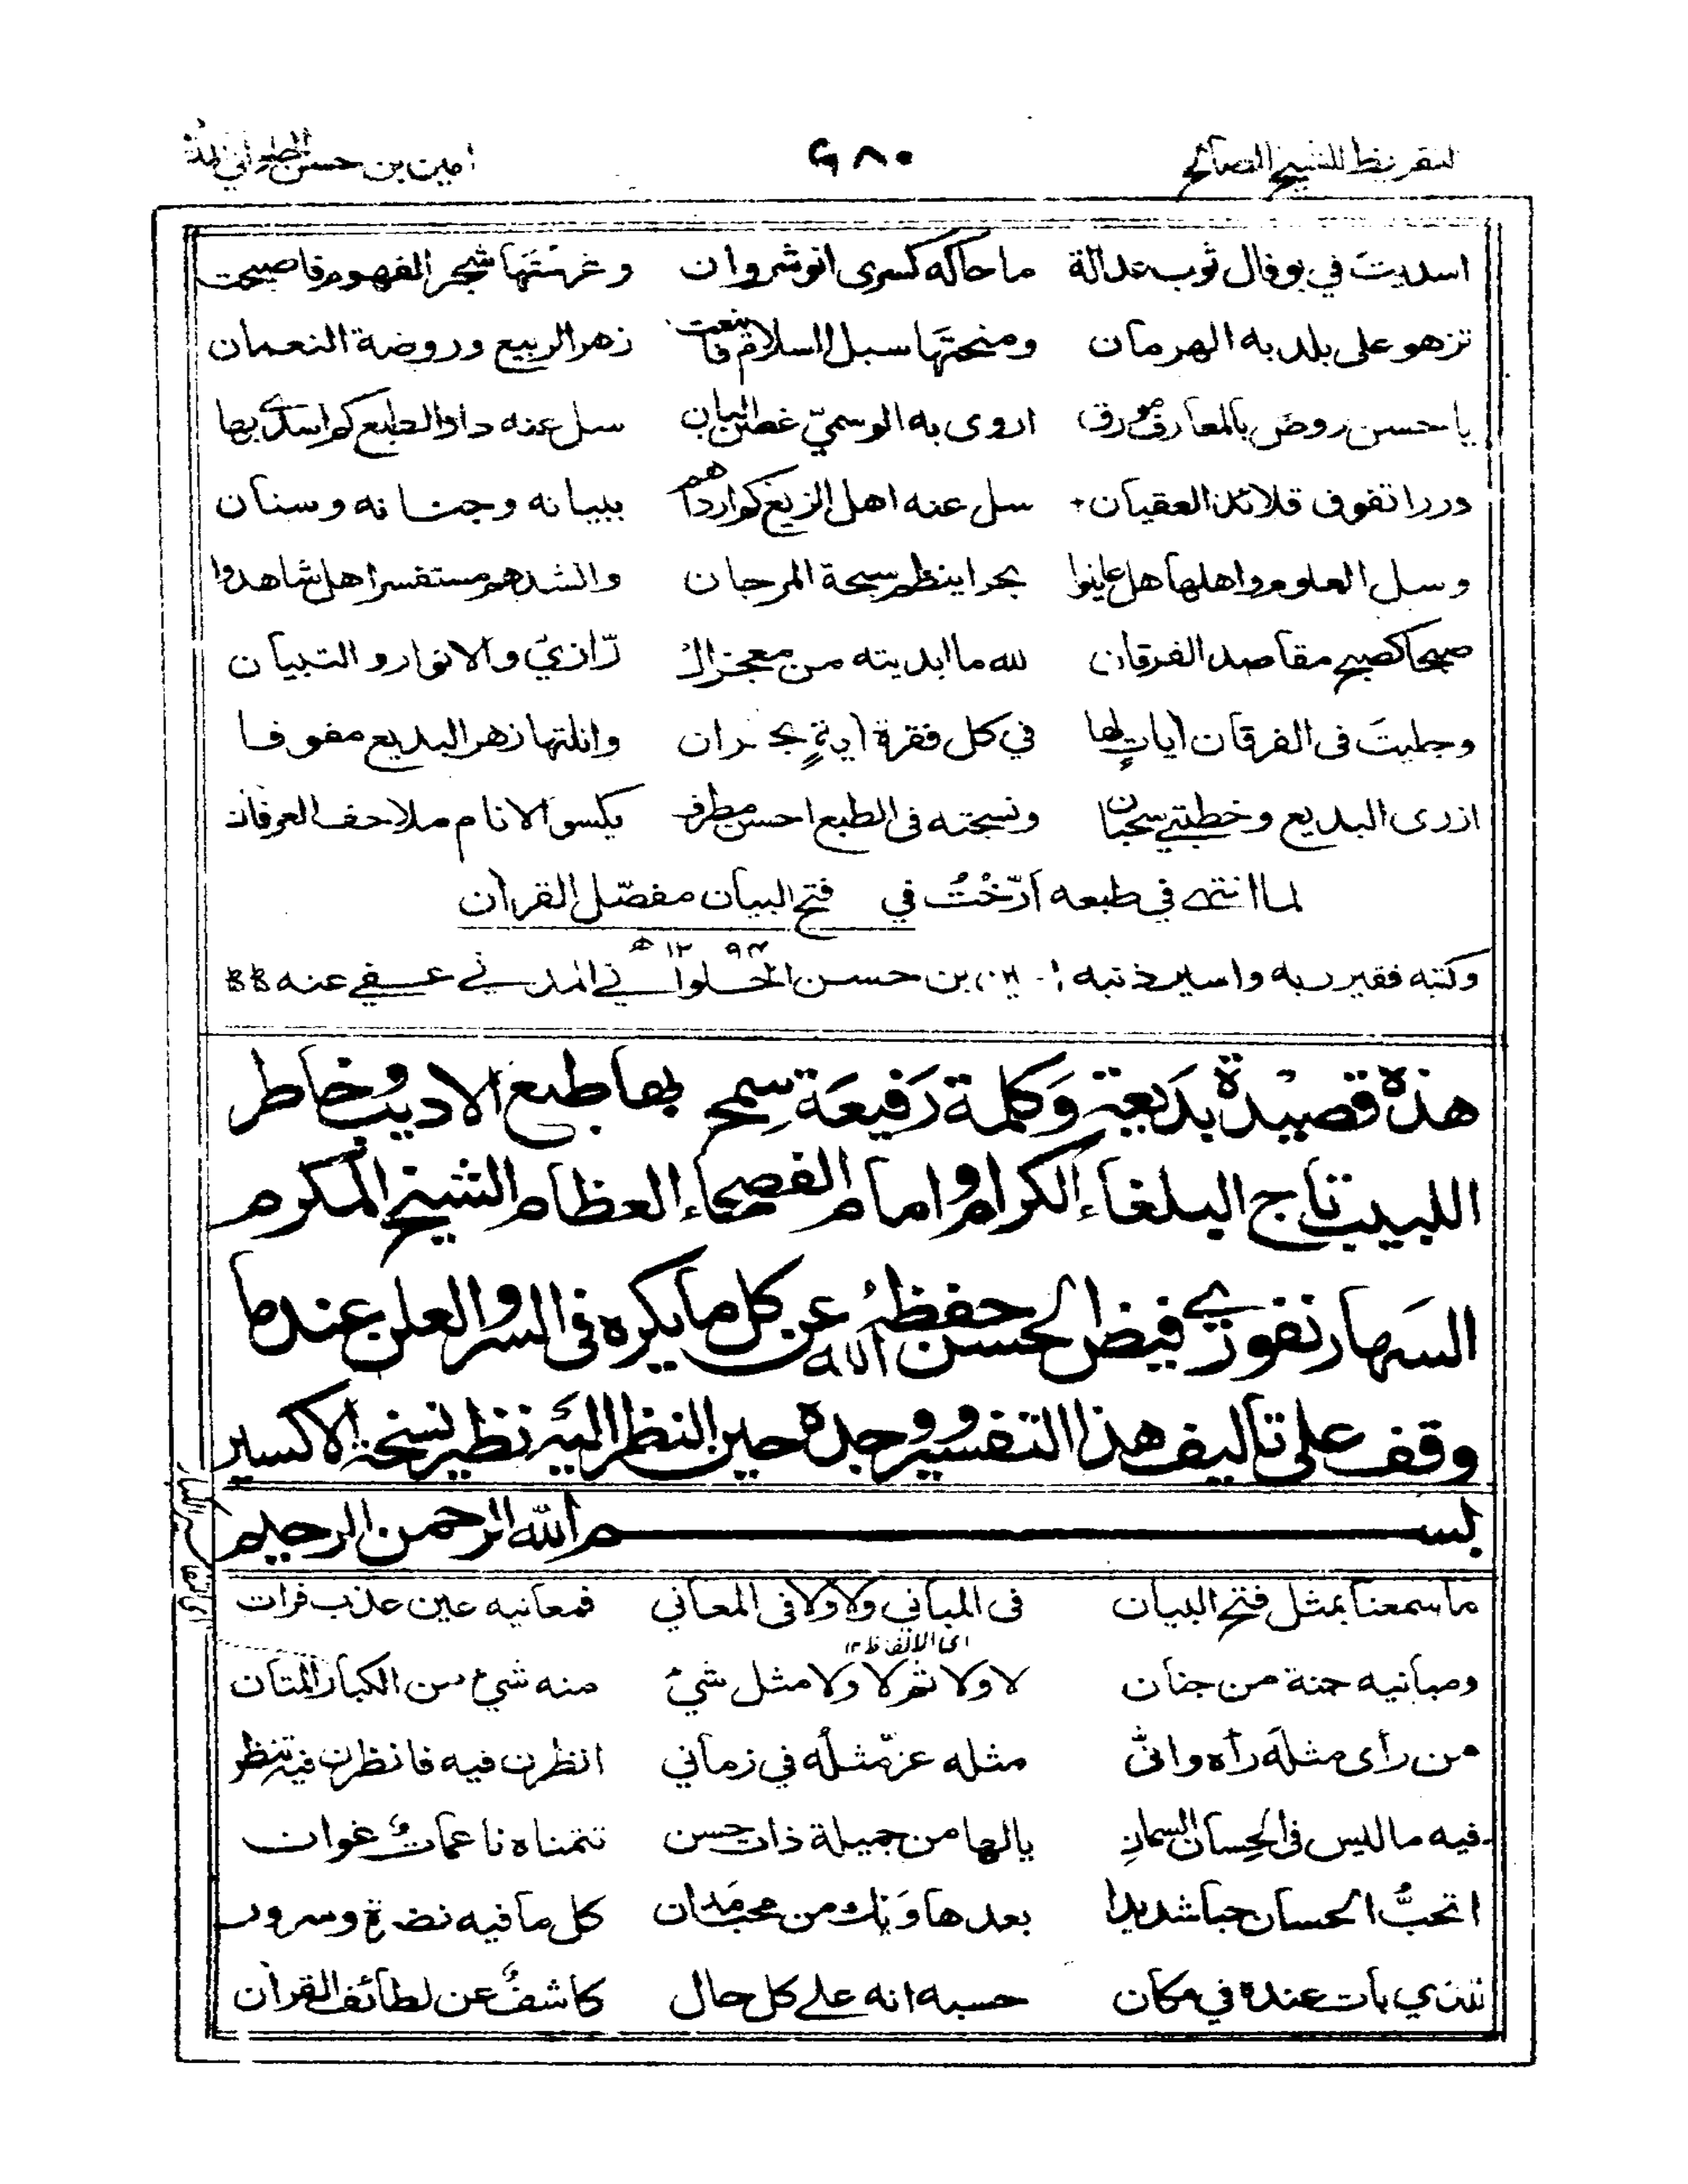 لتقريظ للشيخ الصالح ٤٨٠ امين بن حسن
اسديت في بوفال ثوب عدالة ما حاكه كسرى انوشروان وغرستها شجر الفهوم فاصبحت
تزهو على بلد به الهرمان ومنحتها سبل السلام فاينعت زهر الربيع وروضة النعمان
يا حسن روض بالمعارف مورق اروى به الوسميّ غصن البان سل عنه دار الطبع كم اسدى بها
دررا تفوق قلائد العقيان سل عنه اهل الزيغ كم ارداهم ببيانه وجنانه وسنان
وسل العلوم واهلها هل عاينوا بحرا ينظم سبحة المرجان وانشدهم مستفسرا هل شاهدوا
صبحا كصبح مقاصد الفرقان لله ما ابديته من معجز الـ رّازيّ والانوار والتبيان
وجليتَ فى الفرقان اياتٍ لها في كل فقرة اية بحران وانلتها زهر البديع مفوفا
ازرى البديع وخطبتي سحبان ونسجته فى الطبع احسن مطرف يكسو الانام ملاحف العرفان
لما انتهى في طبعه اَرّخْتُ في فتح البيان مفصّل القران
١٢٩٤ ه
وكتبه فقير ربه واسير ذنبه امين بن حسن الحلواني المدني عفي عنه
هذه قصيدة بديعة وكلمة رفيعة سمح بها طبع الاديب وخاطر
اللبيب تاج البلغاء الكرام وامام الفصحاء العظام الشيخ المكرم
السهارنفوري فيض الحسن حفظه الله عن كل ما يكره فى السر والعلن عندما
وقف على تاليف هذا التفسير ووجده حين النظر اليه نظير نسخة الاكسير
بسم الله الرحمن الرحيم
ما سمعنا بمثل فتح البيان فى المباني ولا ولا فى المعاني فمعانيه عين عذب فرات
اى الالفاظ ١٢
ومبانيه جنة من جنان لا ولا ثم لا ولا مثل شئ منه شئ من الكبار المتان
من رأى مثله رأه وانى مثله عزّ مثلُه في زماني انظرن فيه فانظرن فيه تنظر
فيه ما ليس فى الحِسان السمانِ يالها من جميلة ذات حسن تتمناه ناعمات غوان
اتحبُّ الحسان حبا شديدا بعدها وَيك من محب مُدان كل ما فيه نضرة وسرور
للذي بات عنده في مكان حسبه انه على كل حال كاشفٌ عن لطائف القران